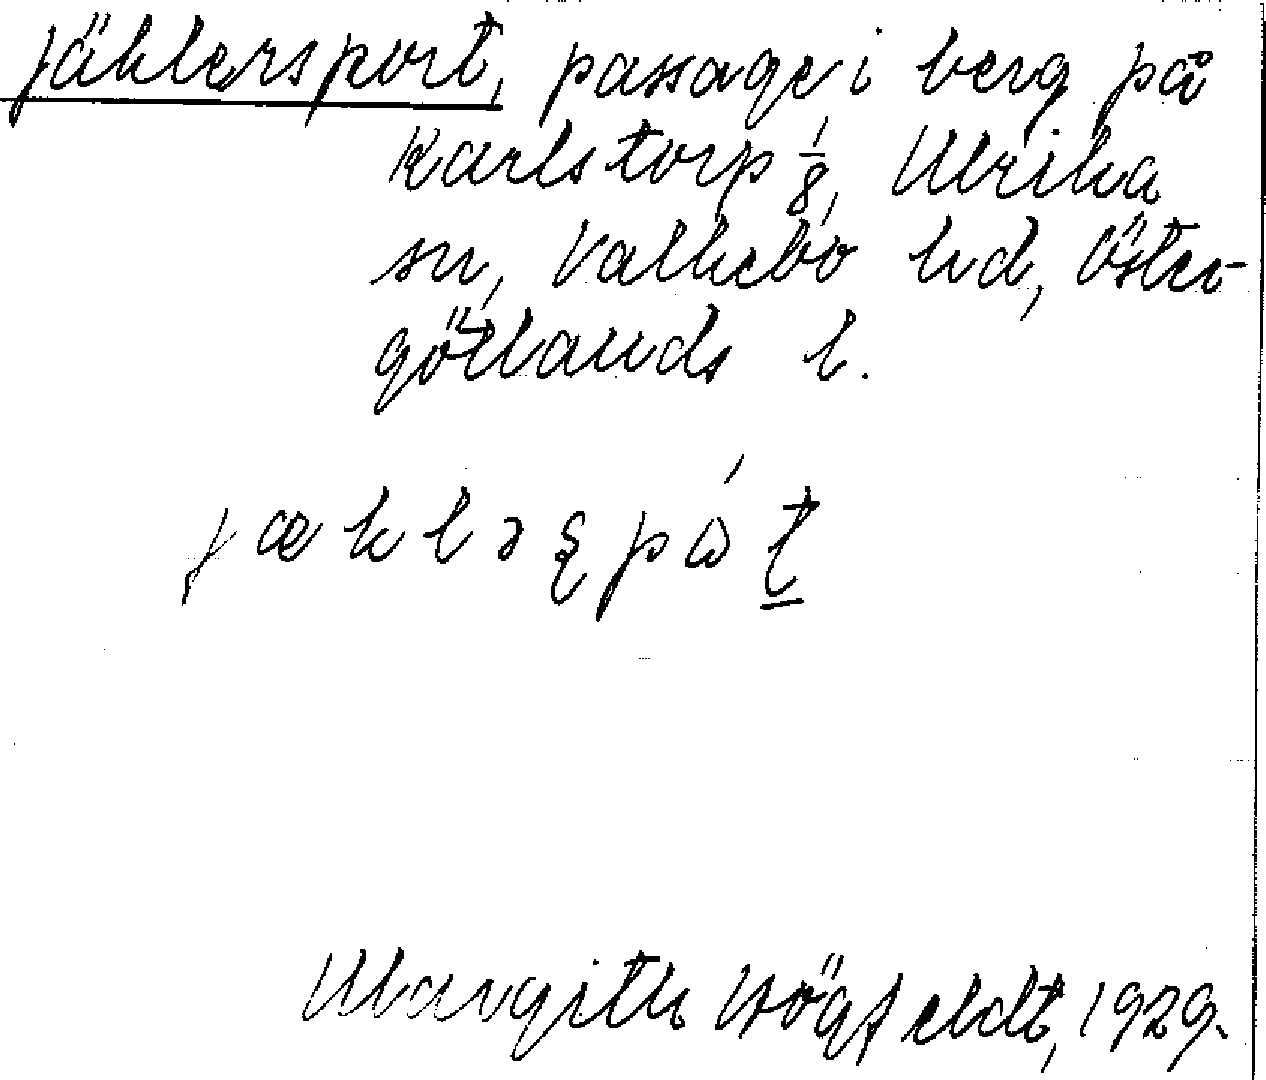 jäklersport, passage i berg på
Karlstorp 1/8, Ulrika
sn, Valkebo hd, Öster-
götlands l.
Margith Högfeldt, 1929.